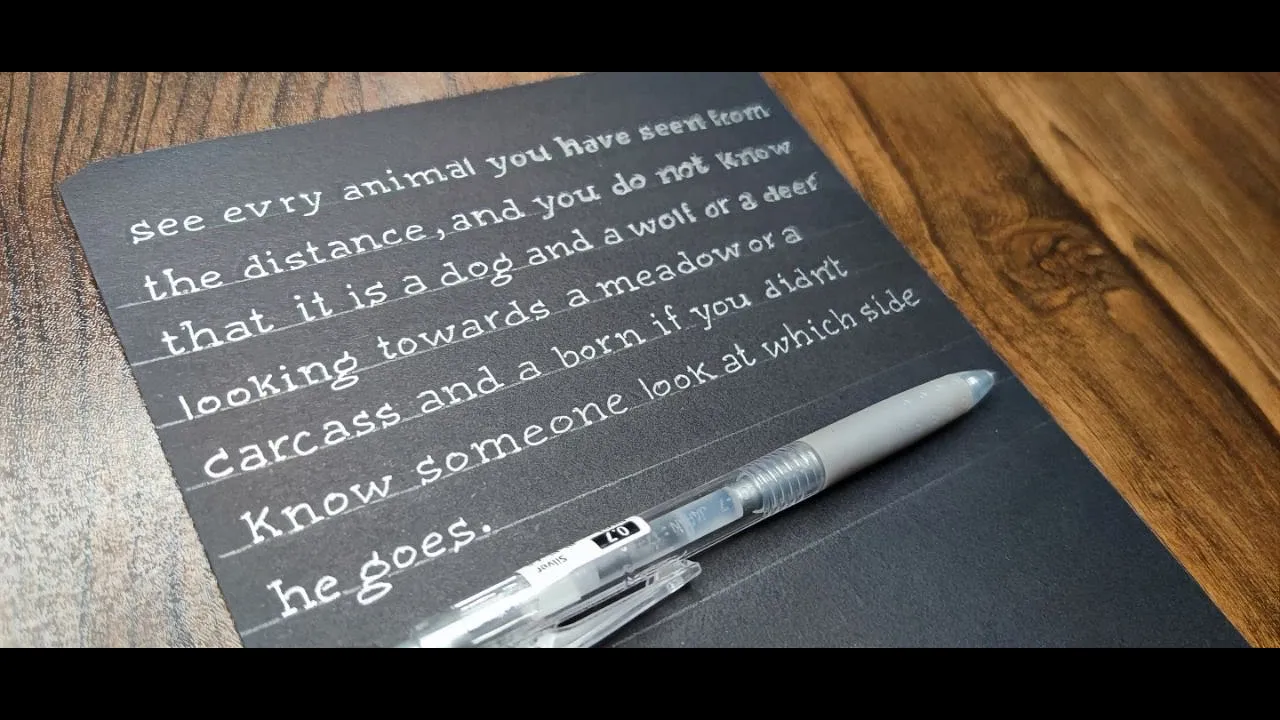 see evry animal you have seen from
the distance, and you do not know
that it is a dog and a wolf or a deer
looking towards a meadow or a
carcass and a born if you didn't
know someone look at which side
he goes.
0.7
Silver